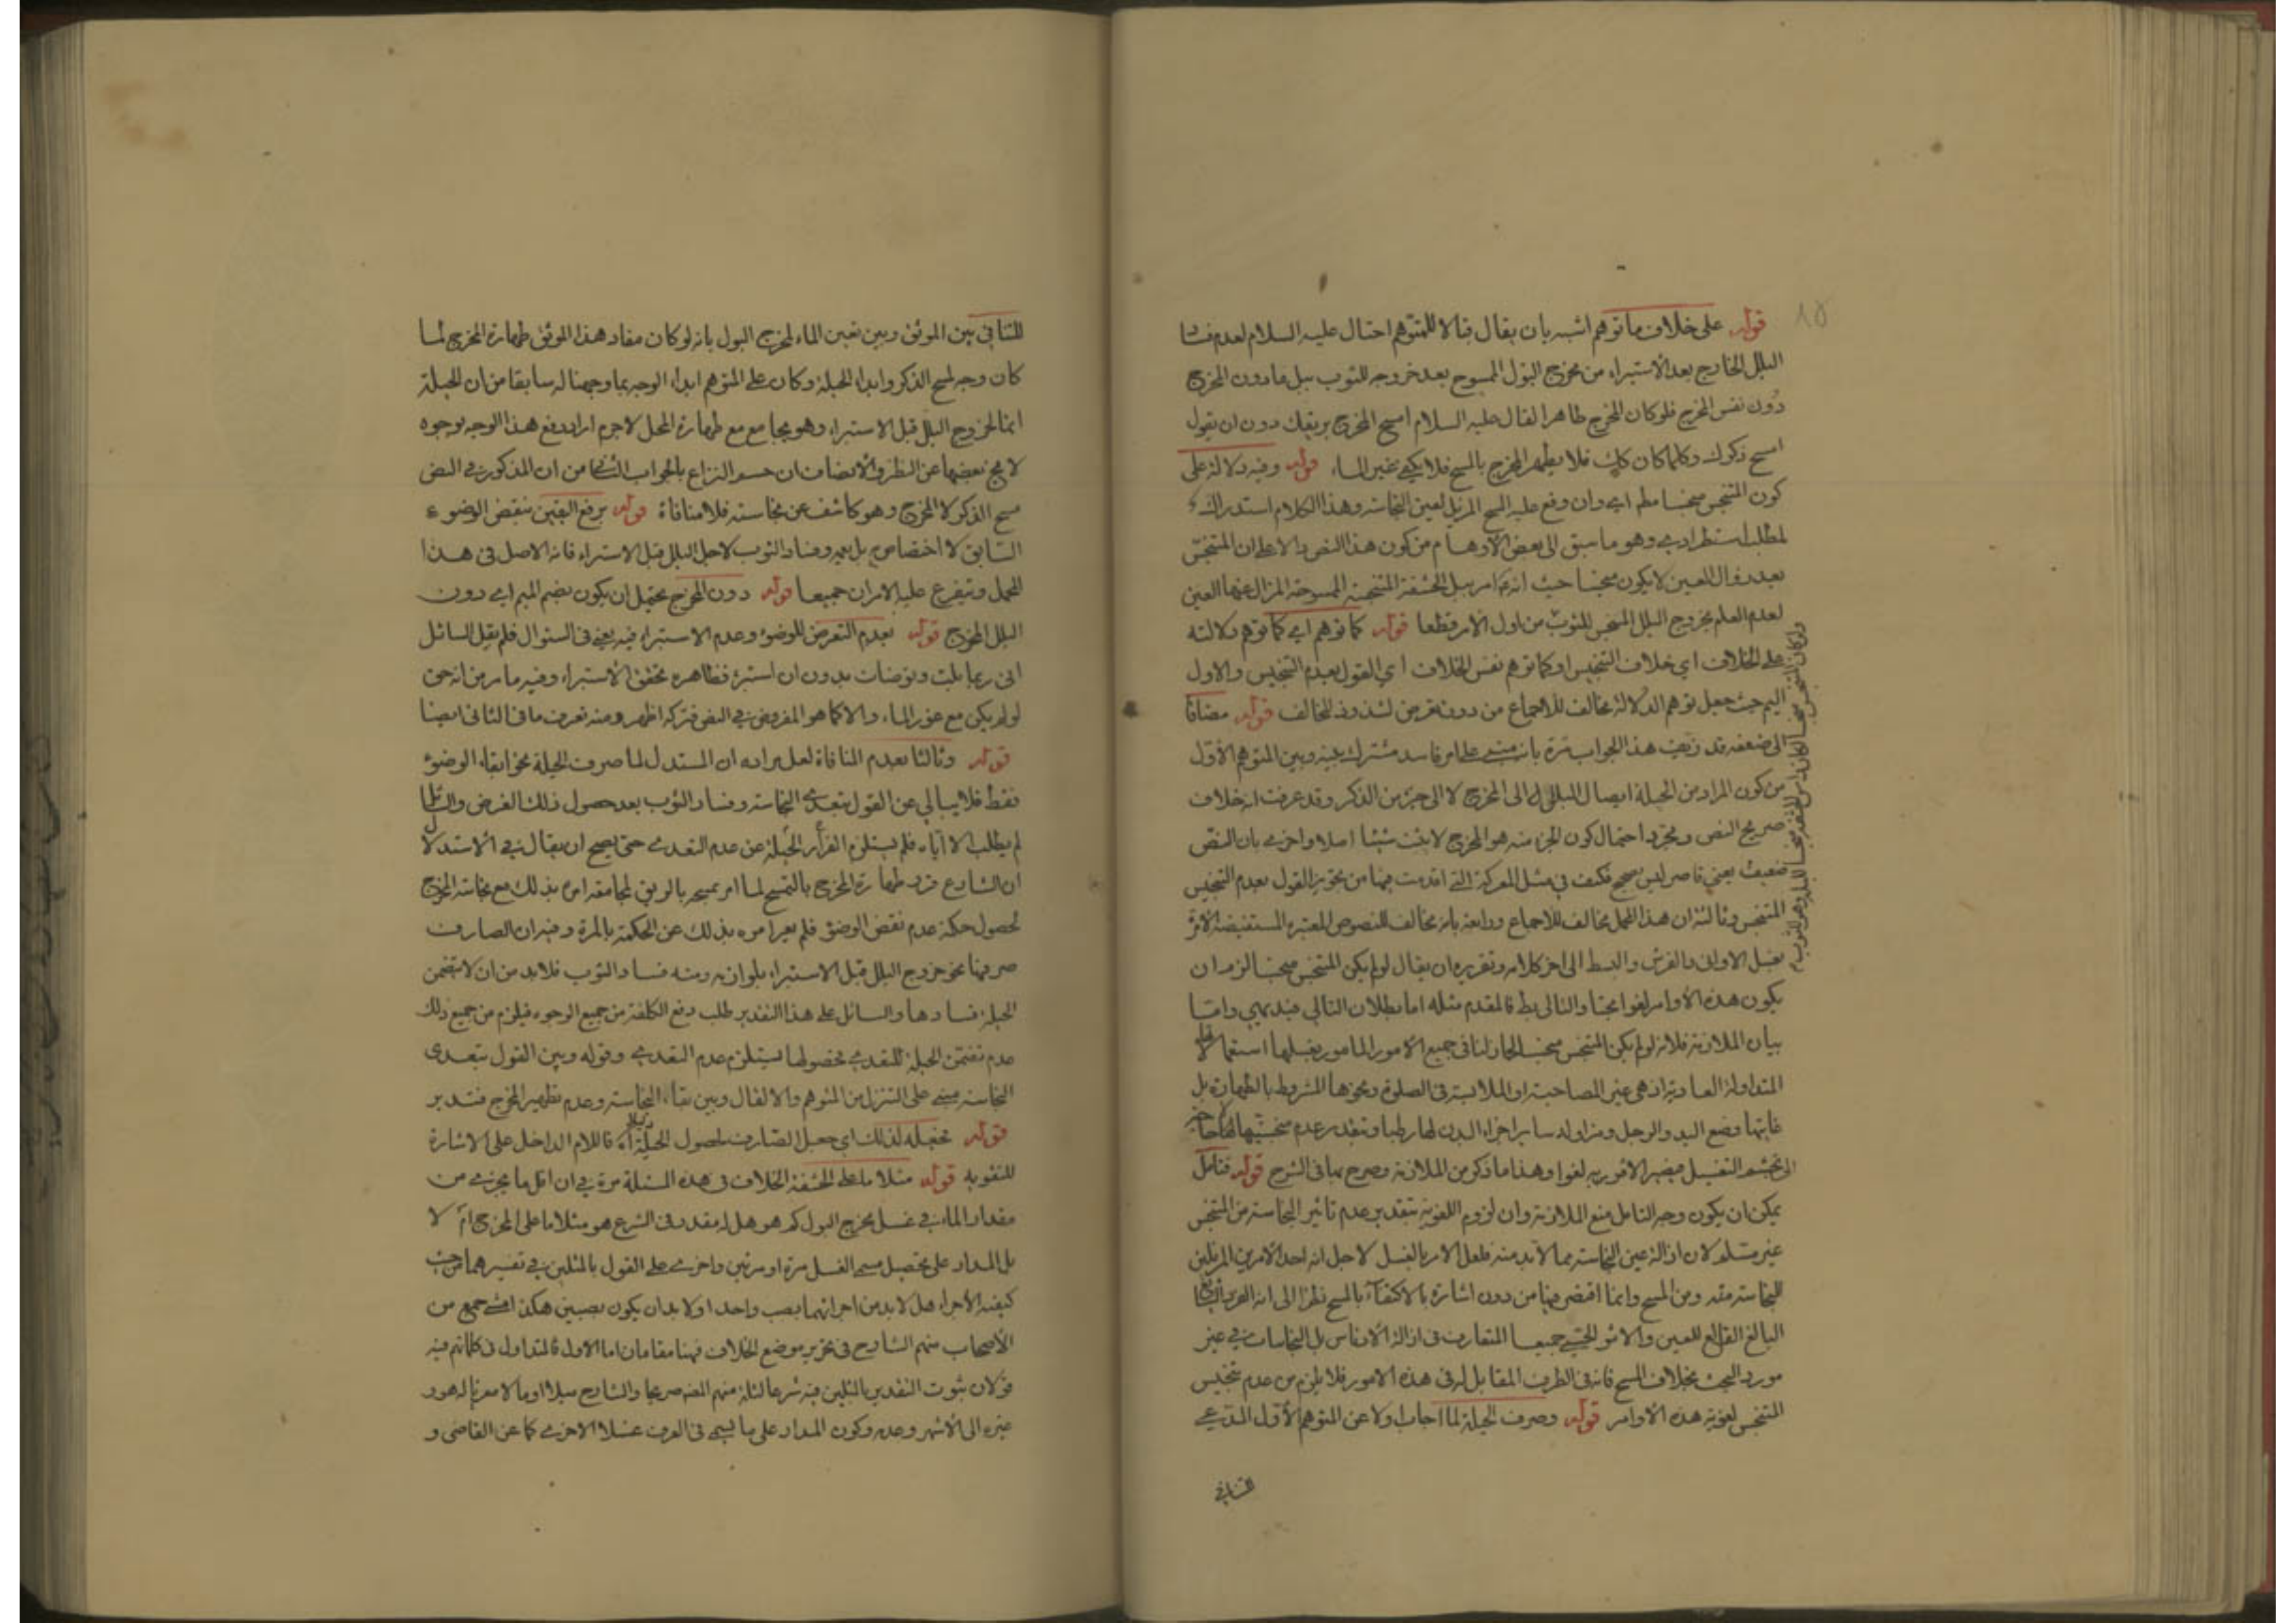 ١٥
قوله على خلاف ما توهم اشبه بان يقال قبالا للمتوهم احتال عليه السلام لعدم
البلل الخارج بعد الاستبراء من مخرج البول الممسوح بعد خروجه للثوب ببل ما دون المخرج
دون نفس المخرج فلو كان المخرج طاهرا لقال عليه السلام امسح المخرج بريقك دون ان يقول
امسح ذكرك وكلما كان كك فلا يطهر المخرج بالمسح فلا يكفى غير الماء قوله وفيه دلالة على
كون المتنجس منجسا مطم اي وان وقع عليه المسح المزيل لعين النجاسة وهذا الكلام استدراك
لمطلب استطرادي وهو ما سبق الى بعض الاوهام من كون هذا النص دالا على ان المتنجس
بعد زوال العين لا يكون منجسا حيث انه امر ببل الحشفة المتنجسة الممسوحة المزال عنها العين
لعدم العلم بخروج البلل المنجس للثوب من اول الامر قطعا قوله كما توهم اي كما توهم دلالته
على الخلاف اي خلاف التنجيس او كما توهم نفس الخلاف اي القول بعدم التنجيس والاول
اليم حيث جعل توهم الدلالة مخالف للاجماع من دون تعرض لشذوذ المخالف قوله مضافا
الى ضعفه قد زيف هذا الجواب مرة بانه مبنى على امر فاسد مشترك بينه وبين المتوهم الاول
من كون المراد من الحيلة ايصال البلل الى المخرج لا الى جزء من الذكر وقد عرفت انه خلاف
صريح النص ومجرد احتمال كون الجزء منه هو المخرج لا يثبت شيئا اصلا واخرى بان النص
ضعيف يعني قاصر ليس بصحيح فكيف في مثل المعركة التي اقدمت فيها من تجويز القول بعدم التنجيس
المتنجس وثالثة ان هذا المحمل مخالف للاجماع ورابعة بانه مخالف للنصوص المعتبرة المستفيضة الامرة
بغسل الاواني والفرش والبسط الى اخر كلامه وتقريره ان يقال لو لم يكن المتنجس منجسا لزم ان
يكون هذه الاوامر لغوا مجتا والتالى بط فالمقدم مثله اما بطلان التالي فبديهي واما
بيان الملازمة فلانه لو لم يكن المتنجس منجسا لجاز لنا في جميع الامور المامور بغسلها استعمالا
المتداولة العادية اذ هي غير المصاحبة او الملابسة في الصلوة ونحوها المشروط بالطهارة بل
غايتها وضع اليد والرجل ومزاولة ساير اجزاء البدن لها رطبا وبتقدير عدم منجسيتها
الى تجشم التغسيل فيصير الامر به لغوا وهذا ما ذكر من الملازمة وصرح بها في الشرح قوله فتامل
يمكن ان يكون وجه التامل منع الملازمة وان لزوم اللغوية بتقدير عدم تاثير النجاسة من المتنجس
غير مسلم لان ازالة عين النجاسة مما لا بد منه فلعل الامر بالغسل لاجل انه احد الامرين المزيلين
للنجاسة منه ومن المسح وانما اقتصر فيها من دون اشارة بالاكتفاء بالمسح نظرا الى انه الفرد
البالغ القالع للعين والاثر الحسي جميعا المتعارف في ازالة الادناس بل النجاسات في غير
مورد البحث بخلاف المسح فانه في الطرف المقابل له في هذه الامور فلا يلزم من عدم تنجيس
المتنجس لغوية هذه الاوامر قوله وصرف الحيلة لما اجاب اولا عن المتوهم الاول المدعي
التنافي
للتنافي بين الموثق وبين تعين الماء لمخرج البول بانه لو كان مفاد هذا الموثق طهارة المخرج لما
كان وجه لمسح الذكر وابداء الحيلة وكان على المتوهم ابداء الوجه بما وجهنا له سابقا من ان الحيلة
انما لخروج البلل قبل الاستبراء وهو مجامع مع طهارة المحل لاجرم اراد دفع هذا الوجه بوجوه
لا يخ بعضها عن النظر والانصاف ان حسم النزاع بالجواب الثاني من ان المذكور في النص
مسح الذكر لا المخرج وهو كاشف عن نجاسته فلا منافاة قوله برفع اليقين بنقض الوضوء
السابق لا اختصاص به بل يعمه وفساد الثوب لاجل البلل قبل الاستبراء فانه الاصل في هذا
المحمل ويتفرع عليه الامران جميعا قوله دون المخرج يحتمل ان يكون بضم الميم اي دون
البلل المخرج قوله بعدم التعرض للوضوء وعدم الاستبراء فيه يعني في السئوال فلم يقل السائل
انى ربما بلت وتوضات بدون ان استبرء فظاهره تحقق الاستبراء وفيه ما مر من انه حق
لو لم يكن مع عوز الماء والا كما هو المفروض في النص فتركه اظهر ومنه تعرف ما في الثاني ايضا
قوله وثالثا بعدم المنافاة لعل مراده ان المستدل لما صرف الحيلة نحو ابقاء الوضوء
فقط فلا يبالي عن القول بتعدى النجاسة وفساد الثوب بعد حصول ذلك الغرض والسائل
لم يطلب الا اياه فلم يستلزم الحيلة عن عدم التعدى حتى يصح ان يقال في الاستدلال
ان الشارع فرد طهارة المخرج بالتمسح لما امر بمسحه بالريق لمجامعة امره بذلك مع نجاسة المخرج
لحصول حكمة عدم نقض الوضوء فلم يعر امره بذلك عن الحكمة بالمرة وفيه ان الصارف
صرفها نحو خروج البلل قبل الاستبراء بلوازمه ومنه فساد الثوب فلا بد من ان لا تتضمن
الحيلة فسادها والسائل على هذا التقدير طلب دفع الكلفة من جميع الوجوه فيلزم من جميع ذلك
عدم تضمن الحيلة للتعدى فحصولها يستلزم عدم التعدى وقوله وبين القول بتعدى
النجاسة مبني على التنزل من المتوهم والا لقال وبين بقاء النجاسة وعدم تطهير المخرج فتدبر
قوله فجعله لذلك اي جعل الصارف لحصول الحيلة فاللام الداخل على الاشارة
للتقوية قوله مثلا ما على الحشفة الخلاف في هذه المسئلة مرة في ان اقل ما يجزي من
مقدار الماء في غسل مخرج البول كم هو هل له مقدر في الشرع هو مثلا ما على المخرج ام لا
بل المدار على تحصيل مسمى الغسل مرة او مرتين واخرى على القول بالمثلين في تفسيرهما من حيث
كيفية الاجراء هل لا بد من اجرائهما بصب واحد او لا بد ان يكون بصبين هكذا جمع من
الاصحاب منهم الشارح في تحرير موضع الخلاف فهنا مقامان اما الاول فالمتداول في كلماتهم فيه
قولان ثبوت التقدير بالمثلين فيه شرعا لثلة منهم المص صريحا والشارح ميلا اوما الا معزيا له هو و
غيره الى الاشهر وعدمه وكون المدار على ما يسمى في العرف غسلا لاخرى كما عن القاضي و